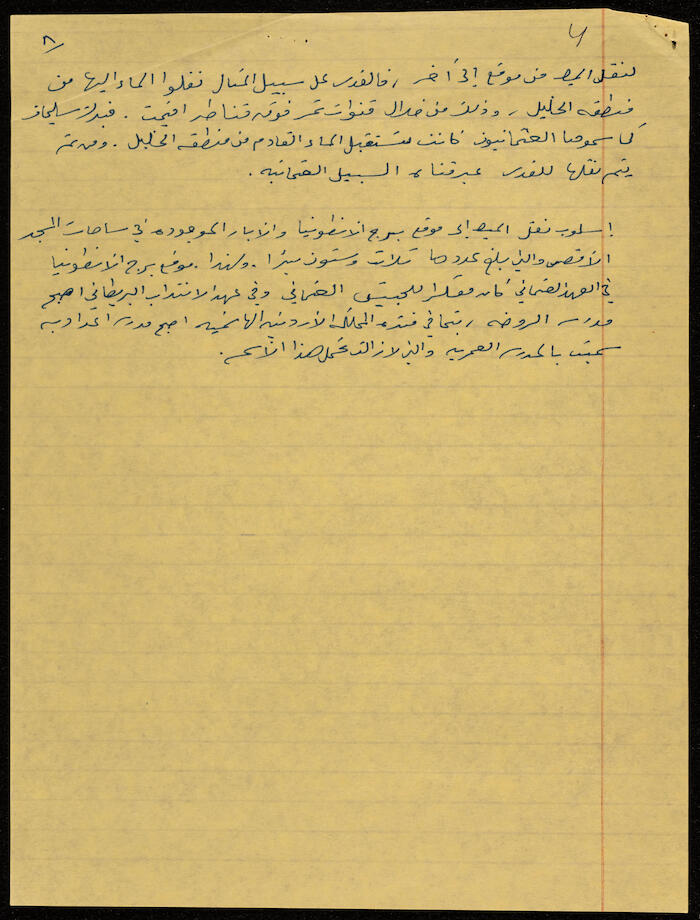 ٨
لنقل المياه من موقع إلى آخر، فالقدس على سبيل المثال نقلوا الماء إليها من
منطقه الخليل، وذلك من خلال قنوات تمر فوق قناطر اقيمت. فبرك سليمان
كما سموها العثمانيون كانت تستقبل الماء القادم من منطقه الخليل. ومن ثم
يتم نقلها للقدس عبر قناه السبيل العثمانيه.
اسلوب نقل المياه إلى موقع برج الانطونيا والابار الموجوده في ساحات المسجد
الأقصى والتي بلغ عددها ثلاث وستون بئراً. ولهذا موقع برج الانطونيا
في العهد العثماني كان معسكر للجيش العثماني وفي عهد الانتداب البريطاني اصبح
مدرسه الروضه، في فتره المملكه الأردنيه الهاشميه اصبح مدرسه اعداديه
سميت بالمدرسه العمريه والتي لازالت تحمل هذا الأسم.